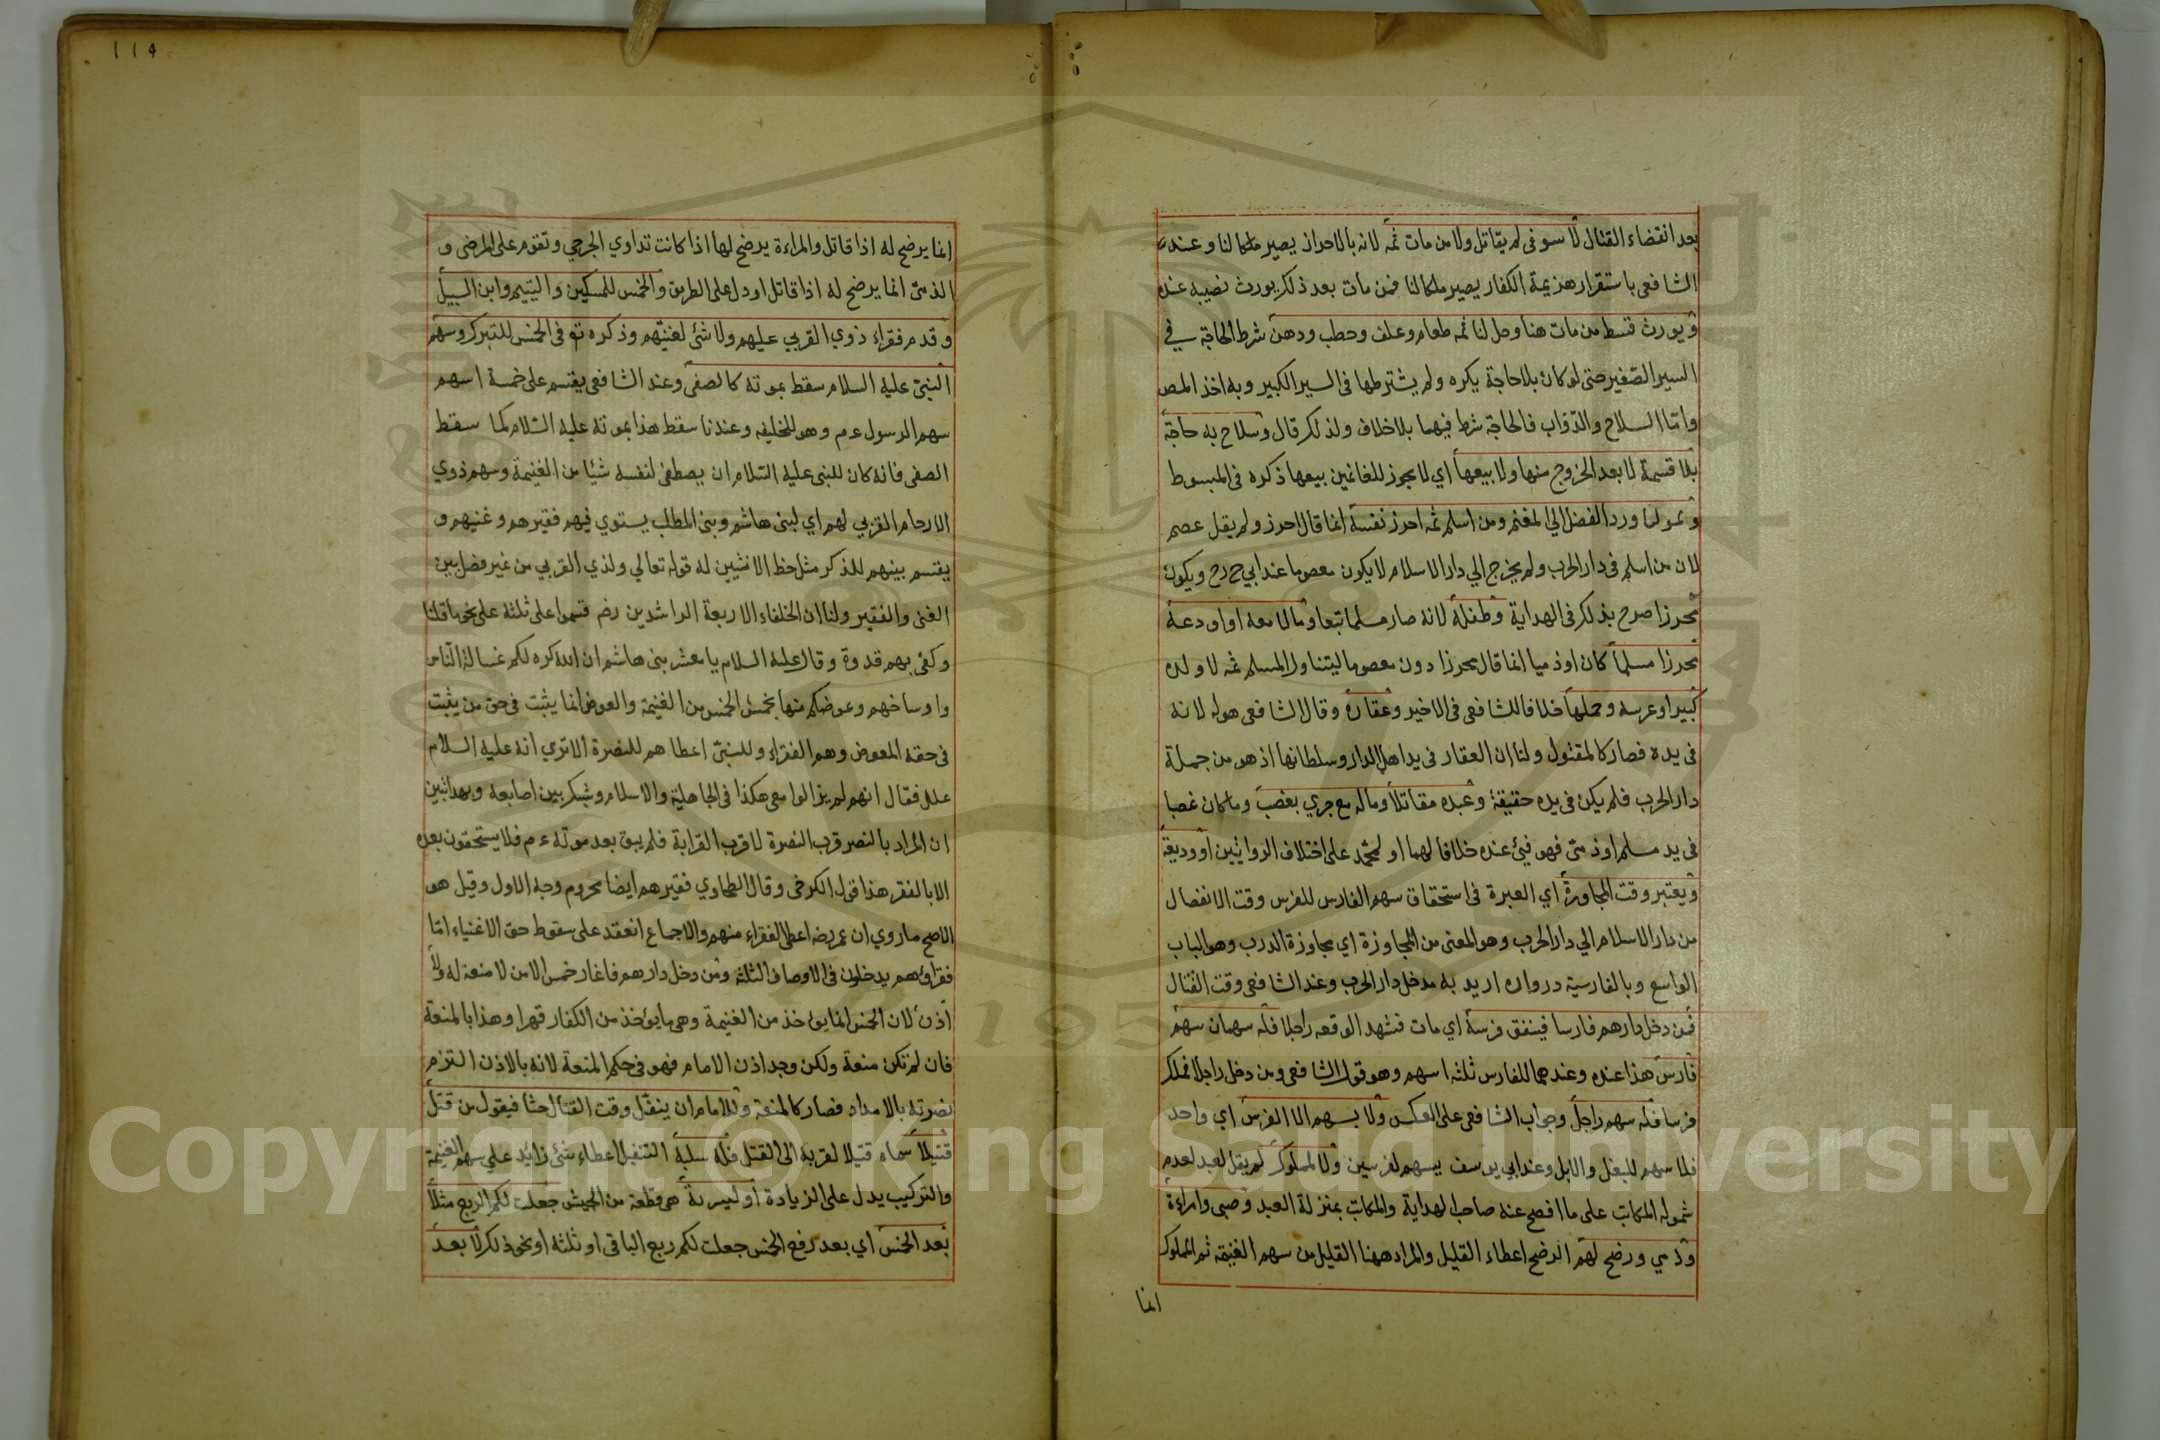 بعد انقضاء القتال لا سوقى لم يقاتل ولا من مات ثمه لانه بالاحراز يصير ملكا لنا وعند
الشافعى باستقرار هزيمة الكفار يصير ملكا لنا فمن مات بعد ذلك يورث نصيبه عنده
ويورث قسط من مات هنا وحل لنا ثمه طعام وعلف وحطب ودهن شرط الحاجة في
السير الصغير حتى لو كان بلا حاجة يكره ولم يشترطها فى السير الكبير وبه اخذ المص
واما السلاح والدواب فالحاجة شرط فيهما بلا خلاف ولذلك قال وسلاح به حاجة
بلا قسمة لا بعد الخروج منها ولا بيعها اي لا يجوز للغانمين بيعها ذكره فى المبسوط
وتمولها ورد الفضل الي المغنم ومن اسلم ثمه احرز نفسه انما قال احرز ولم يقل عصم
لان من اسلم فى دار الحرب ولم يخرج الي دار الاسلام لا يكون معصوما عند ابي ح رح ويكون
محرزا صرح بذلك فى الهداية وطفله لانه صار مسلما تبعا ومالا معه او اودعه
محرزا مسلما كان او ذميا انما قال محرزا دون معصوما ليتناول المسلم ثمه لا ولده
كبيرا وعرسه وحملها خلافا للشافعى فى الاخير وعقاره وقال الشافعى هو له لانه
فى يده فصار كالمنقول ولنا ان العقار فى يد اهل الدار وسلطانها اذ هو من جملة
دار الحرب فلم يكن فى يده حقيقة وعبده مقاتلا وماله مع حربي بغصب وما كان غصبا
فى يد مسلم او ذمى فهو فيئ عنده خلافا لهما او لمحمد على اختلاف الروايتين او وديعة
ويعتبر وقت المجاوزة اي العبرة فى استحقاق سهم الفارس للفرس وقت الانفصال
من دار الاسلام الي دار الحرب وهو المعنى من المجاوزة اي مجاوزة الدرب وهو الباب
الواسع وبالفارسية دروازه اريد به مدخل دار الحرب وعند الشافعى وقت القتال
فمن دخل دارهم فارسا فينفق فرسه اي مات فشهد الوقعه راجلا فله سهمان سهم
فارس هذا عنده وعندهما للفارس ثلثه اسهم وهو قول الشافعى ومن دخل راجلا فملك
فرسا فله سهم راجل وجواب الشافعى على العكس ولا يسهم الا الفرس اي واحد
فلا سهم للبغل والابل وعند ابي يوسف يسهم لفرسين ولا لمملوك لم يقل لعبد لعدم
شموله المكاتب على ما افصح عنه صاحب الهداية والمكاتب بمنزلة العبد وصبى وامراءة
وذمي ورضح لهم الرضح اعطاء القليل والمراد ههنا القليل من سهم الغنيمة ثم المملوك
انما
١١٤
انما يرضح له اذا قاتل والمراءة يرضح لها اذا كانت تداوي الجرحي وتقوم على المرضى و
الذمى انما يرضح له اذا قاتل او دل على الطريق والخمس للمسكين واليتيم وابن السبيل
وقدم فقراء ذوي القربي عليهم ولا شئ لغنيهم وذكره تع فى الخمس للتبرك وسهم
النبى عليه السلام سقط بموته كالصفى وعند الشافعى يقسم على خمسة اسهم
سهم الرسول عم وهو للخليفه وعندنا سقط هذا بموته عليه السلام كما سقط
الصفى فانه كان للنبى عليه السلام ان يصطفى لنفسه شيئا من الغنيمة وسهم ذوي
الارحام القربي لهم اي لبنى هاشم وبنى المطلب يستوي فيهم فقيرهم وغنيهم و
يقسم بينهم للذكر مثل حظ الانثيين له قوله تعالي ولذي القربي من غير فصل بين
الغنى والفقير ولنا ان الخلفاء الاربعة الراشدين رضم قسموا على ثلثة على نحو ما قلنا
وكفى بهم قدوة وقال عليه السلام يا معشر بنى هاشم ان الله كره لكم غسالة الناس
واوساخهم وعوضكم منها بخمس الخمس من الغنيمة والعوض انما يثبت فى حق من يثبت
فى حقه المعوض وهم الفقراء وللنبى اعطاهم للنصرة الا تري انه عليه السلام
علل فقال انهم لم يزالوا معى هكذا فى الجاهلية والاسلام وشبك بين اصابعه وبهذا تبين
ان المراد بالنصر قرب النصرة لا قرب القرابة فلم يبق بعد موته عم فلا يستحقون بعده
الا بالفقر هذا قول الكرخى وقال الطحاوي فقيرهم ايضا محروم وجه الاول وقيل هو
الاصح ما روي ان عمر رضه اعطى الفقراء منهم والاجماع انعقد على سقوط حق الاغنياء اما
فقراؤهم يدخلون فى الاوصاف الثلثه ومن دخل دارهم فاغار خمس الا من لا منعة له ولا
اذن لان الخمس انما يؤخذ من الغنيمة وهى ما يؤخذ من الكفار قهرا وهذا بالمنعة
فان لم تكن منعة ولكن وجد اذن الامام فهو فى حكم المنعة لانه بالاذن التزم
نصرته بالامداد فصار كالمنعة وللامام ان ينفل وقت القتال حثا فيقول من قتل
قتيلا سماه قتيلا لقربه الى القتل فله سلبه التنفيل اعطاء شئ زائد على سهم الغنيمة
والتركيب يدل على الزيادة او لسرية هى قطعة من الجيش جعلت لكم الربع مثلا
بعد الخمس اي بعد رفع الخمس جعلت لكم ربع الباقى او ثلثه او نحو ذلك لا بعد
Copyright © King Saud University